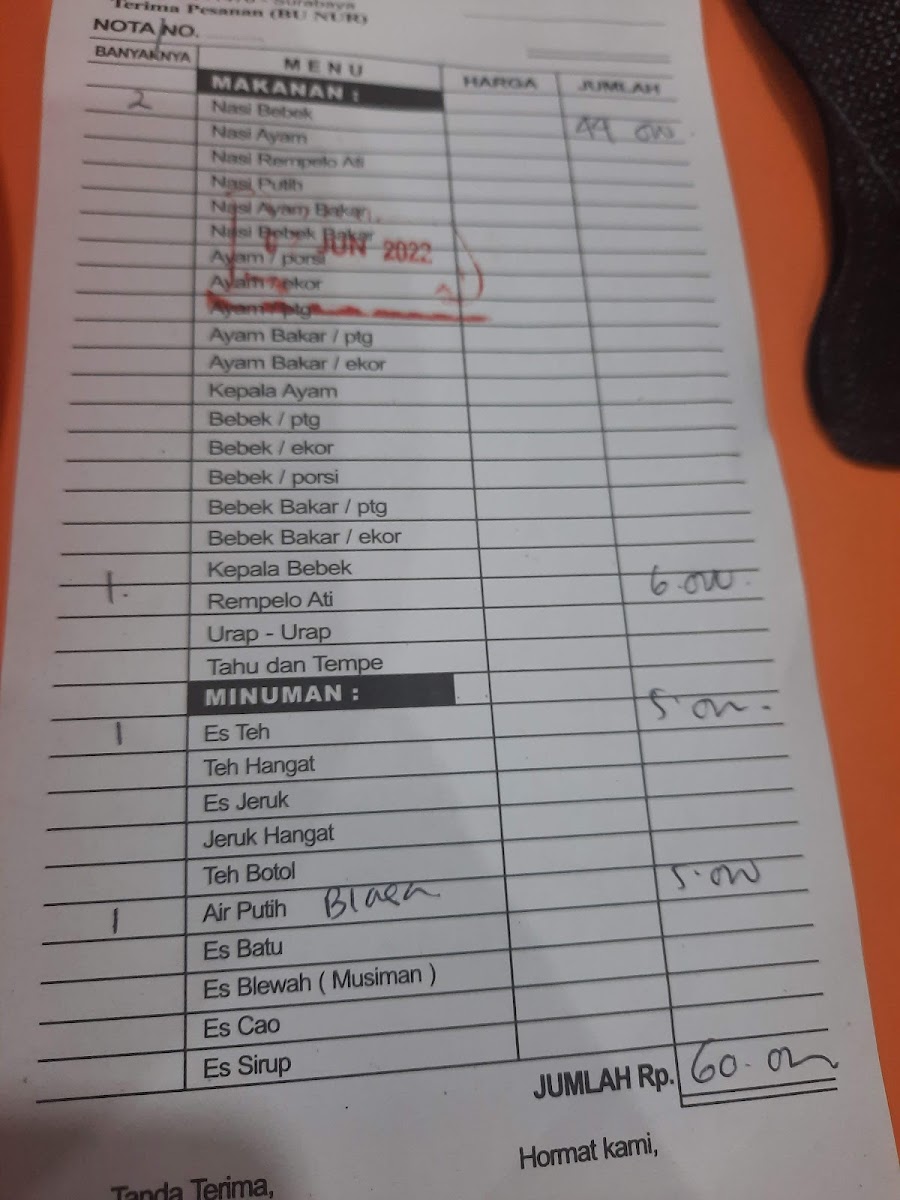 Surabaya
Terima Pesanan (BU NUR)
NOTA NO.
BANYAKNYA MENU HARGA JUMLAH
MAKANAN :
2 Nasi Bebek 44 000
Nasi Ayam
Nasi Rempelo Ati
Nasi Putih
Nasi Ayam Bakar
Nasi Bebek Bakar
JUN 2022
Ayam / porsi
Ayam / ekor
Ayam / ptg
Ayam Bakar / ptg
Ayam Bakar / ekor
Kepala Ayam
Bebek / ptg
Bebek / ekor
Bebek / porsi
Bebek Bakar / ptg
Bebek Bakar / ekor
Kepala Bebek
1. Rempelo Ati 6.000
Urap - Urap
Tahu dan Tempe
MINUMAN :
1 Es Teh 5.000
Teh Hangat
Es Jeruk
Jeruk Hangat
Teh Botol
1 Air Putih 5.000
Es Batu
Es Blewah ( Musiman )
Es Cao
Es Sirup
JUMLAH Rp. 60.000
Hormat kami,
Tanda Terima,